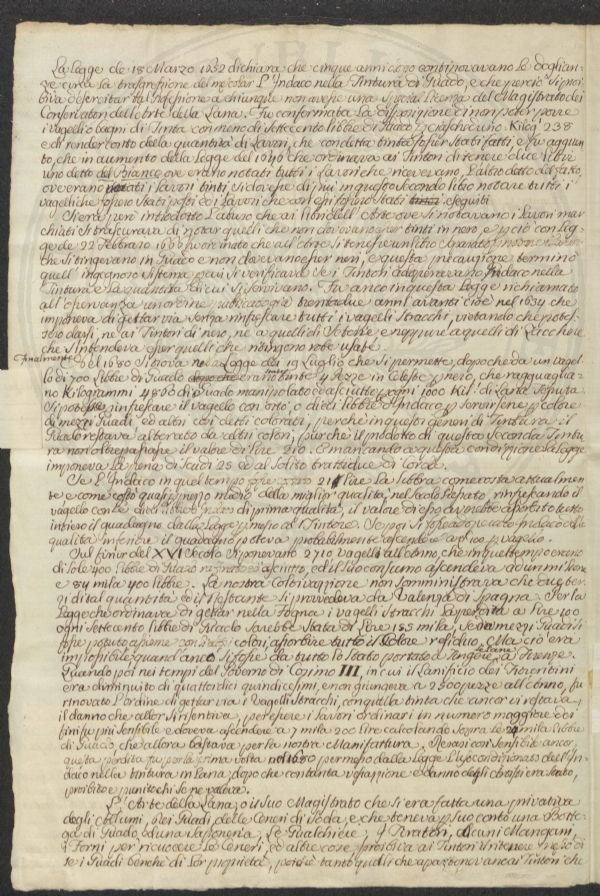 La Legge de 18 Marzo 1652 dichiara che cinque anni dopo continovavano le doglian-
ze circa la trasgressione del mesciar L'Indaco nella Tintura di Guado, e che perciò si proi-
biva d'esercitar tal professione a chiunque non avesse una special licenza del Magistrato dei
Conservatori dell'Arte della Lana. Fu confermata la disposizione di non poter porre
i vagelli o bagni di Tinta con meno di Settecento libbre di Guado per ciascheduno Kilog. 238
e di render conto della quantità di Lavori, che con detta tinta fosser Stati fatti, e fu aggiun-
to, che in aumento della Legge del 1646 che ordinava ai Tintori di tenere due libri
uno detto del Bianco ove erano notati tutti i lavori che ricevevano, L'altro detto del fatto,
ove erano notati i lavori tinti, si dovesse di più in questo secondo libro notare tutti i
vagelli che fossero Stati posti ed i lavori che con essi fossero Stati eseguiti
Si era però introdotto L'abuso che ai libri dell'Arte ove si notavano i Lavori mar-
chiati si trascurava di notar quelli che non dovevano esser tinti in nero, e perciò con Leg-
ge de 22 Febbraio 1656 fu ordinato che all'Arte si tenesse un libro Separato per
che si tingevano in Guado e non dovevano esser neri, e questa precauzione terminò
quell'ingegnoso sistema per cui si verificava se i Tintori adoperavano Indaco nella
Tintura e la quantità di cui si servivano. Fu anco in questa Legge richiamato
all'osservanza un ordine pubblicato già trentadue anni avanti cioè nel 1624 che
imponeva di gettar via senza rinfrescare tutti i vagelli stracchi, vietando che potes-
sero darsi, nè ai Tintori di nero, nè a quelli di Seterie e neppure a quelli di Zaccherie
che s'intendeva esser quelli che tingono robe usate.
Finalmente Nel 1680 si trova nella Legge dei 19 Luglio che si permette, dopo che da un vagel-
lo di 700 Libbre di Guado erano tinte 4 Pezze in Celeste per nero, che ragguaglia-
no Kilogrammi di Guado manipolato e asciutto per ogni 1000 Kil. di Lana tessuta
Si potesse rinfrescare il vagello con otto, o dieci libbre d'Indaco per servirsene per colore
di mezzi Guadi, ed altri così detti colorati, perchè in questi generi di Tintura il
Guado restava alterato da altri colori, purchè il prodotto di questa Seconda Tintu-
ra non oltrepassasse il valore di Lire 210. E mancando a questa condizione la Legge
imponeva la pena di Scudi 25 ed al Solito tratti due di Corda.
Se L'Indaco in quel tempo fosse costato 21 lire La libbra come costa attualmen-
te e come costò quasi prezzo medio della miglior qualità, nel Secolo passato, rinfrescando il
vagello con le dieci libbre di prima qualità, il valore di esso avrebbe assorbito tutto
intiero il guadagno dalla Legge permesso al Tintore. Se poi si fosse adoperato Indaco della
qualità inferiore il guadagno poteva probabilmente ascendere a Lire 100 per vagello.
Sul finir del XVI Secolo si ponevano 2710 vagelli all'anno, che in quel tempo erano
di Sole 400 Libbre di Guado ed asciutto, ed il suo consumo ascendeva ad un milione
e 84 mila 400 libbre. La nostra Coltivazione non somministrava che due ter-
zi di tal quantità ed il restante si provvedeva da Valenza di Spagna. Per la
Legge che ordinava di gettar nella Fogna i vagelli Stracchi La perdita a Lire 100
ogni Settecento libbre di Guado sarebbe Stata di Lire 155 mila, Se da mezzi Guadi si
fosse potuto assieme con altri colori, assorbire tutto il Colore residuo. Ma ciò era
impossibile quand'anco si fosse da tutto lo Stato portato a tingere le Lane a Firenze.
Quando poi nei tempi del Governo di Cosimo III, in cui il Lanificio dei Fiorentini
era diminuito di quattordici quindicesimi, e non giungeva a 2500 pezze all'Anno, fu
rinnovato L'ordine di gettar via i Vagelli Stracchi, con quella tinta che ancor vi restava,
il danno che allor si risentiva, per essere i lavori ordinari in numero maggiore dei
fini fu più sensibile e doveva ascendere a 7 mila 200 lire calcolando sopra le 20 mila libbre
di Guado, che allora bastava per la nostra Manifattura. Resasi così Sensibile ancor
questa perdita fu per la prima volta nel 1680 permesso dalla Legge L'uso condizionato dell'In-
daco nella tintura in Lana, dopo che con tanta vessazione e danno degli Artisti era Stato
proibito e puniti chi se ne valeva.
L'Arte della Lana, o il Suo Magistrato che si era fatta una privativa
degli allumi, dei Guadi, delle Ceneri di Soda, e che teneva per Suo conto una Botte-
ga di Guado, ed una Saponeria, Le Gualchiere, 4 Tiratori, Alcuni Mangani,
i Forni per ricuocere le Ceneri, ed altre cose, proibiva ai Tintori di ritenere presso di
se i Guadi benchè di Lor proprietà, perchè tanto quelli che appartenevano ai Tintori che